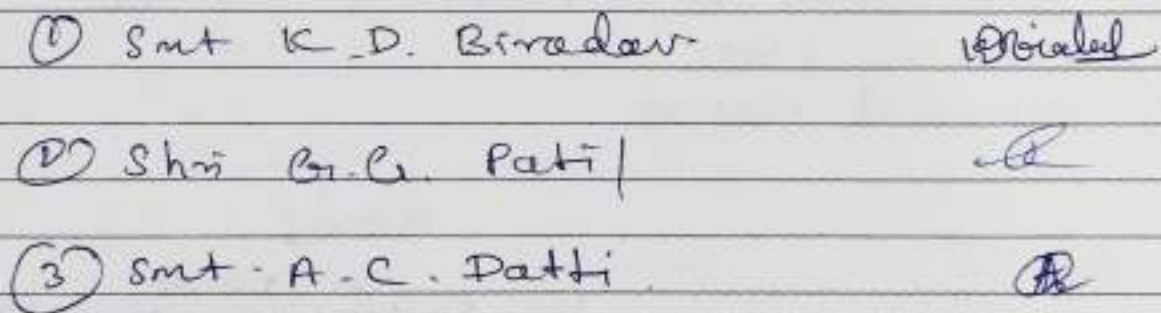 ① Smt K.D. Biradar
② Shri G.G. Patil
③ Smt. A.C. Datti